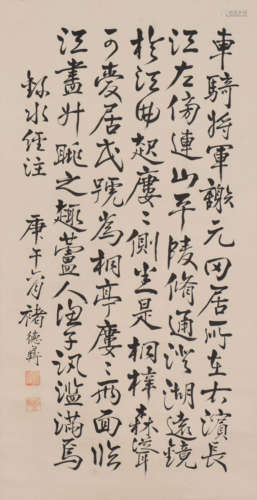 車騎將軍謝元田居所在右濱長
江左傍連山平陵脩通澄湖遠鏡
於江曲起廔廔側坐是桐梓森聳
可愛居民號為桐亭廔廔兩面臨
江盡升眺之趣蘆人漁子汎濫滿焉
水經注
庚午 褚德彝